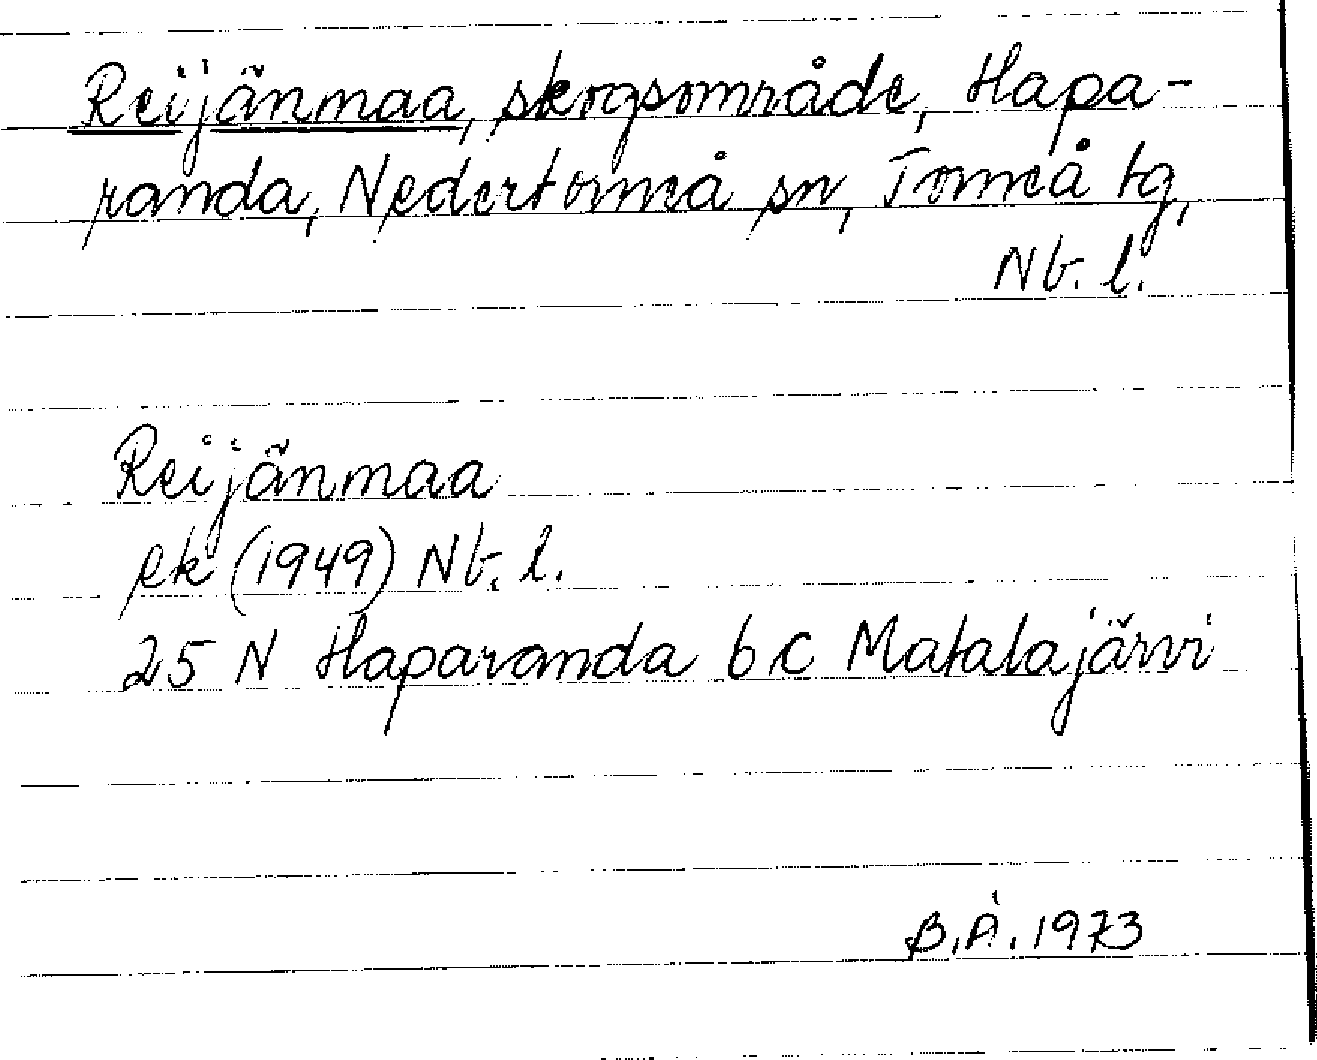 Reijänmaa, skogsområde, Hapa-
randa, Nedertorneå sn, Torneå tg,
Nb. l.
Reijänmaa
ek (1949) Nb. l.
25 N Haparanda b c Matalajärvi
B.Å. 1973